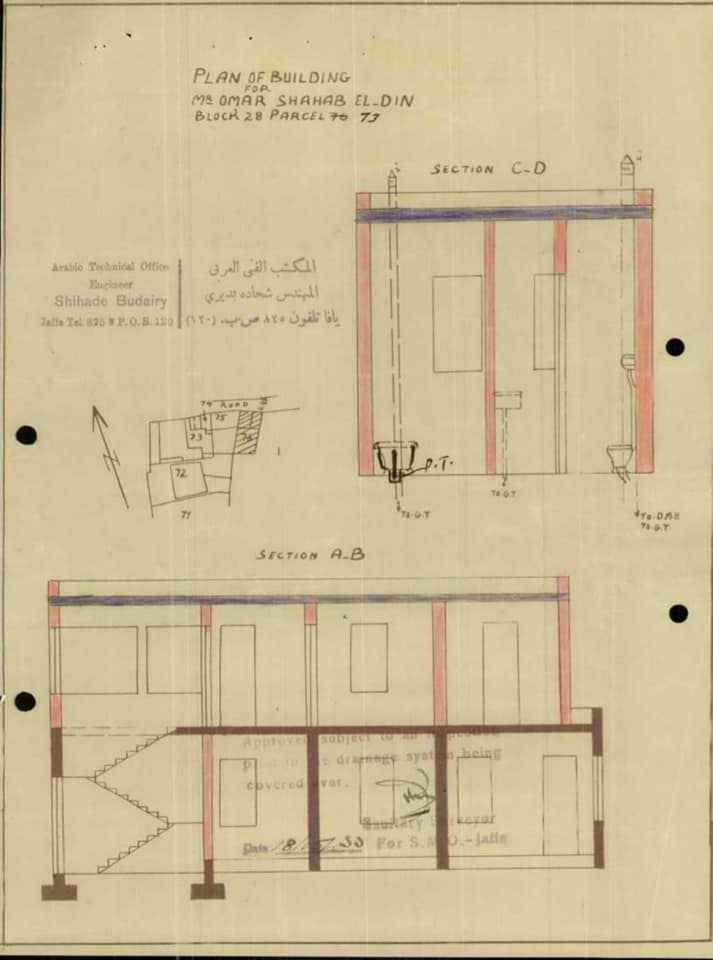 PLAN OF BUILDING
FOR
MR OMAR SHAHAB EL-DIN
BLOCK 28 PARCEL 76 73
SECTION C-D
Arabic Technical Office
Engineer
Shihade Budairy
Jaffa Tel. 825 P.O.B. 120
المكتب الفني العربي
المهندس شحاده بديري
يافا تلفون ٨٢٥ ص.ب. (١٢٠)
74 ROAD
75
73
76
72
71
D.T.
TO G.T.
TO G.T.
TO G.T.
SECTION A-B
Approved subject to an
the drainage system being
covered over.
Sanitary Surveyor
Date
For S.M.O.-Jaffa